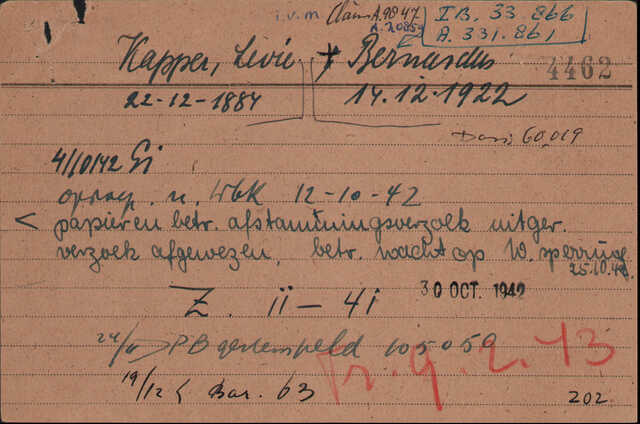 i.v.m Claim A.9847 I B. 33.866
A.20859 A. 331.861
Kapper, Levie + Bernardus 4462
22-12-1884 14.12.1922
60,019
4/10/42 Gi
oproep. n. WbK 12-10-42
< papieren betr. afstammingsverzoek uitger.
verzoek afgewezen. betr. wacht op W. sperrúng
25.10.42
Z. ii - 4i 30 OCT. 1942
PB gestempeld 105059
Tr. 9.2.43
19/12 < Bar. 63
202